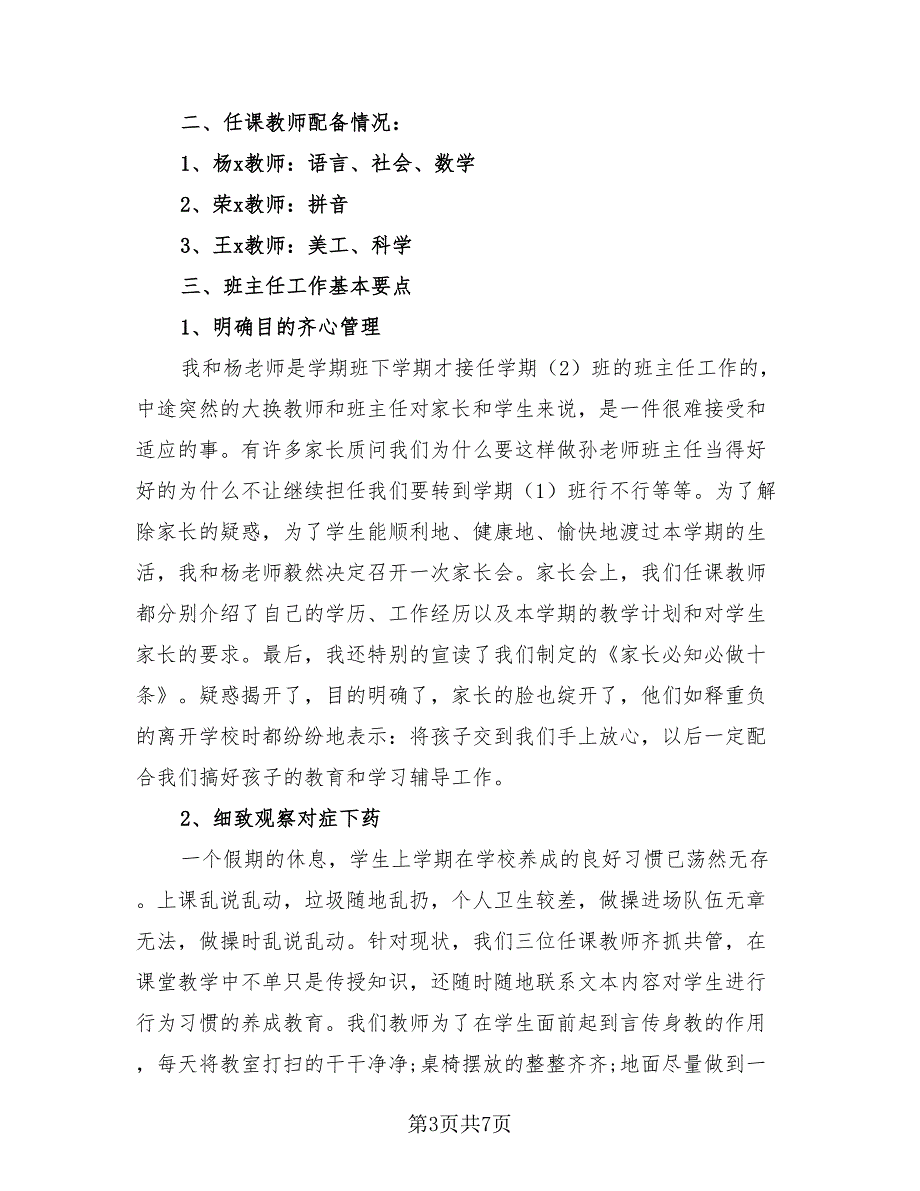 二、任课教师配备情况：
1、杨x教师：语言、社会、数学
2、荣x教师：拼音
3、王x教师：美工、科学
三、班主任工作基本要点
1、明确目的齐心管理
我和杨老师是学期班下学期才接任学期（2）班的班主任工作的，
中途突然的大换教师和班主任对家长和学生来说，是一件很难接受和
适应的事。有许多家长质问我们为什么要这样做孙老师班主任当得好
好的为什么不让继续担任我们要转到学期（1）班行不行等等。为了解
除家长的疑惑，为了学生能顺利地、健康地、愉快地渡过本学期的生
活，我和杨老师毅然决定召开一次家长会。家长会上，我们任课教师
都分别介绍了自己的学历、工作经历以及本学期的教学计划和对学生
家长的要求。最后，我还特别的宣读了我们制定的《家长必知必做十
条》。疑惑揭开了，目的明确了，家长的脸也绽开了，他们如释重负
的离开学校时都纷纷地表示：将孩子交到我们手上放心，以后一定配
合我们搞好孩子的教育和学习辅导工作。
2、细致观察对症下药
一个假期的休息，学生上学期在学校养成的良好习惯已荡然无存
。上课乱说乱动，垃圾随地乱扔，个人卫生较差，做操进场队伍无章
无法，做操时乱说乱动。针对现状，我们三位任课教师齐抓共管，在
课堂教学中不单只是传授知识，还随时随地联系文本内容对学生进行
行为习惯的养成教育。我们教师为了在学生面前起到言传身教的作用
，每天将教室打扫的干干净净;桌椅摆放的整整齐齐;地面尽量做到一
第3页共7页